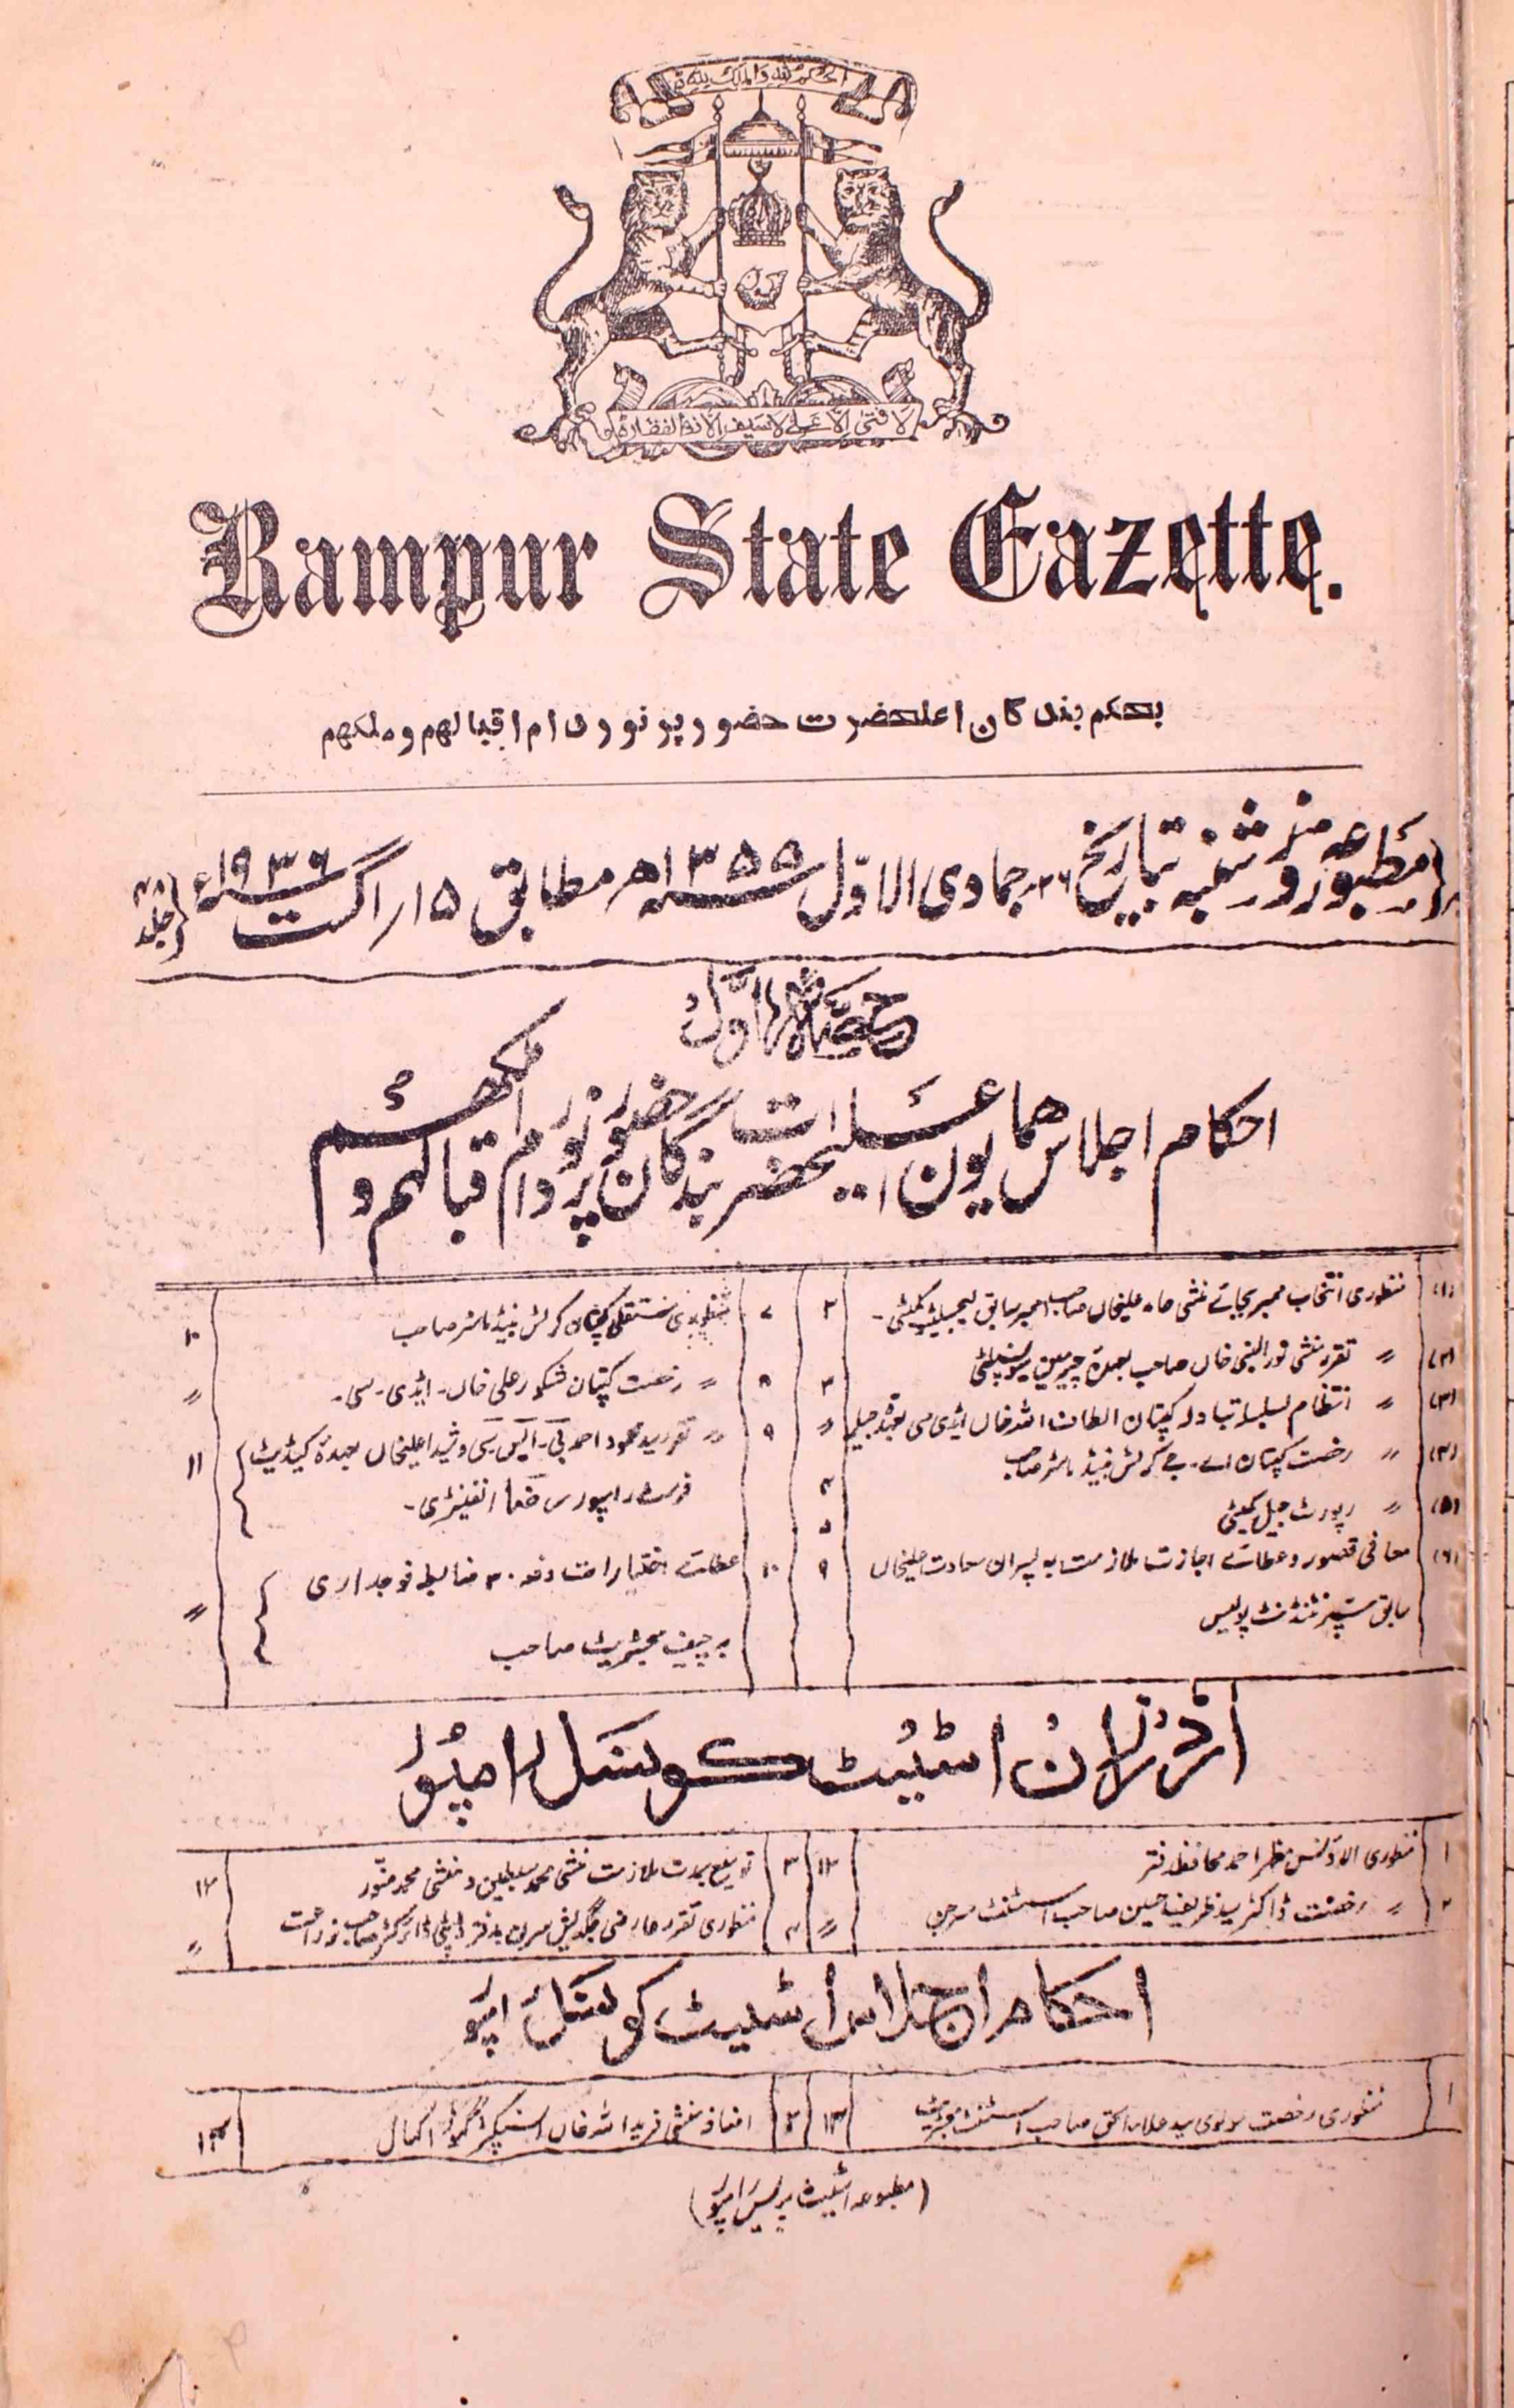 الحکم للہ والملک للہ
لا فتی الا علی لا سیف الا ذو الفقار
Rampur State Gazette.
بحکم بندگان اعلحضرت حضور پر نور دام اقبالہم و ملکہم
مطبوعہ روز شنبہ بتاریخ ۲۶ جمادی الاوّل سنہ ۱۳۵۵ھ مطابق ۱۵ اگست سنہ ۱۹۳۶ء جلد
حصہ اوّل
احکام اجلاس ہمایون اعلیحضرت بندگان حضور پرنور دام اقبالہم و ملکہم
(۱) منظوری انتخاب ممبر بجائے منشی حامد علیخاں صاحب ممبر سابق لیجسلیٹو کمیٹی۔ ۲
(۲) 〃 تقرر منشی نور النبی خاں صاحب بعہدۂ چیرمین میونسپلٹی ۳
(۳) 〃 انتظام بسلسلہ تبادلہ کپتان الطاف اللہ خاں ایڈی سی بعہدۂ جیلر 〃
(۴) 〃 رخصت کپتان اے۔ جے کرلش بینڈ ماسٹر صاحب ۴
(۵) 〃 رپورٹ جیل کمیٹی ۵
(۶) معافی قصور و عطائے اجازت ملازمت بہ پسران سعادت علیخاں ۹
سابق سپرنٹنڈنٹ پولیس
۷ منظوری مستقلی کپتان کرلش بینڈ ماسٹر صاحب ۱۰
۸ 〃 رخصت کپتان شکور علی خاں۔ ایڈی۔ سی۔ 〃
۹ 〃 تقرر سید محمود احمد بی۔ ایس۔ سی و شیدا علیخاں بعہدۂ کیڈیٹ ۱۱
فرسٹ رامپور رضا انفینٹری۔
۱۰ عطائے اختیارات دفعہ ۳۰ ضابطہ فوجداری 〃
بہ چیف مجسٹریٹ صاحب
آرڈرز آن اسٹیٹ کونسل رامپور
۱ منظوری الاؤنس مظہر احمد محافظ دفتر ۱۲
۲ 〃 رخصت ڈاکٹر سید ظریف حسین صاحب اسسٹنٹ سرجن 〃
۳ توسیع مدت ملازمت منشی محمد سبطین و منشی محمد منور ۱۲
۴ منظوری تقرر عارضی جگدیش سرن بدفتر ڈپٹی ڈائرکٹر صاحب زراعت 〃
احکام اجلاس اسٹیٹ کونسل رامپور
۱ منظوری رخصت مولوی سید صاحب اسسٹنٹ مجسٹریٹ ۱۳
۲ اضافہ منشی فرید اللہ خاں انسپکٹر ۱۳
(مطبوعہ اسٹیٹ پریس رامپور)